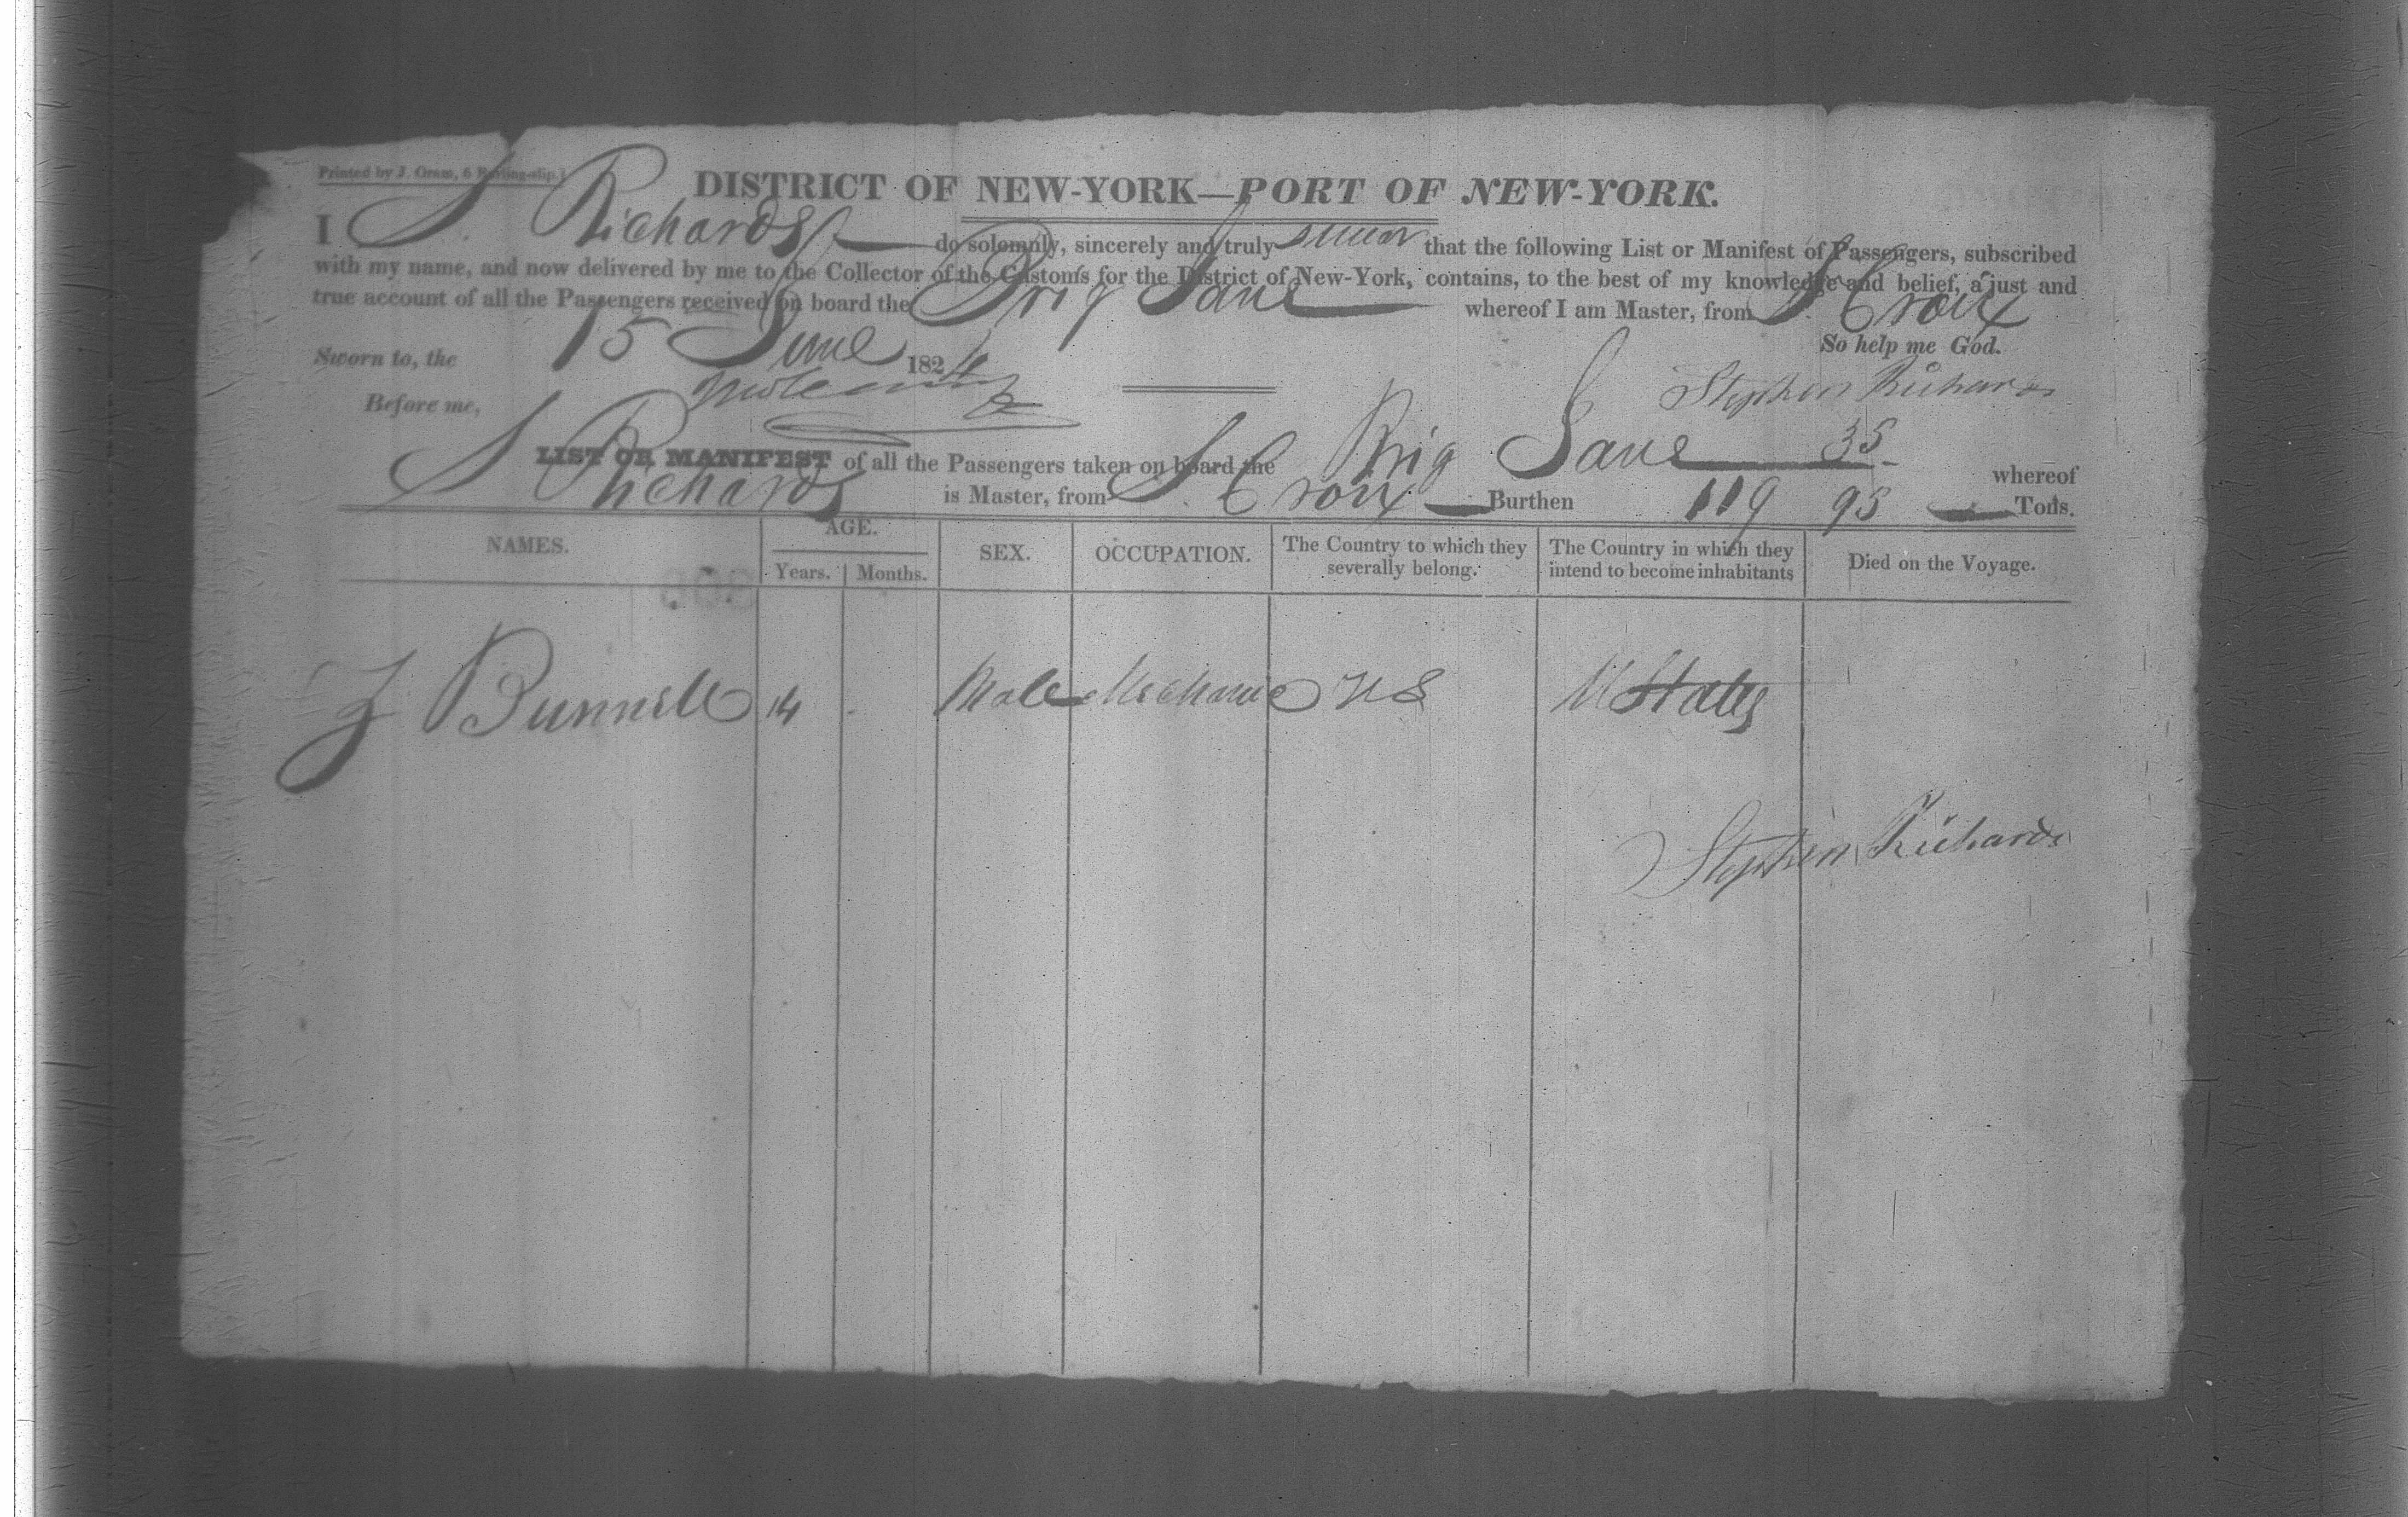 Printed by J. Oram, 6 Burling-slip.]
DISTRICT OF NEW-YORK—PORT OF NEW-YORK.
I S. Richards do solemnly, sincerely and truly swear that the following List or Manifest of Passengers, subscribed
with my name, and now delivered by me to the Collector of the Customs for the District of New-York, contains, to the best of my knowledge and belief, a just and
true account of all the Passengers received on board the Brig Jane whereof I am Master, from S. Croix
So help me God.
Sworn to, the 15 June 182
Stephen Richards
Before me,
LIST OR MANIFEST of all the Passengers taken on board the Brig Jane 35 whereof
S Richards is Master, from S. Croix Burthen 119 95 Tons.
NAMES. AGE. SEX. OCCUPATION. The Country to which they severally belong. The Country in which they intend to become inhabitants Died on the Voyage.
Years. Months.
Z Bunnell 14 Male Mechanic US UStates
Stephen Richards